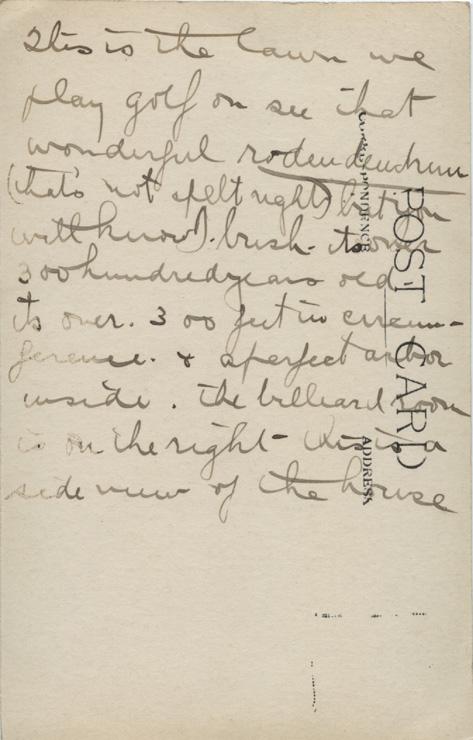 This is the lawn we
play golf on see that
wonderful rodendendrum
(that's not spelt right) but you
will know). bush. its over
300 hundred years old,
its over. 300 feet in circum-
ference. & a perfect arbor
inside. The billiard room
is on the right - this is a
side view of the house
CORRESPONDENCE
POST CARD
ADDRESS